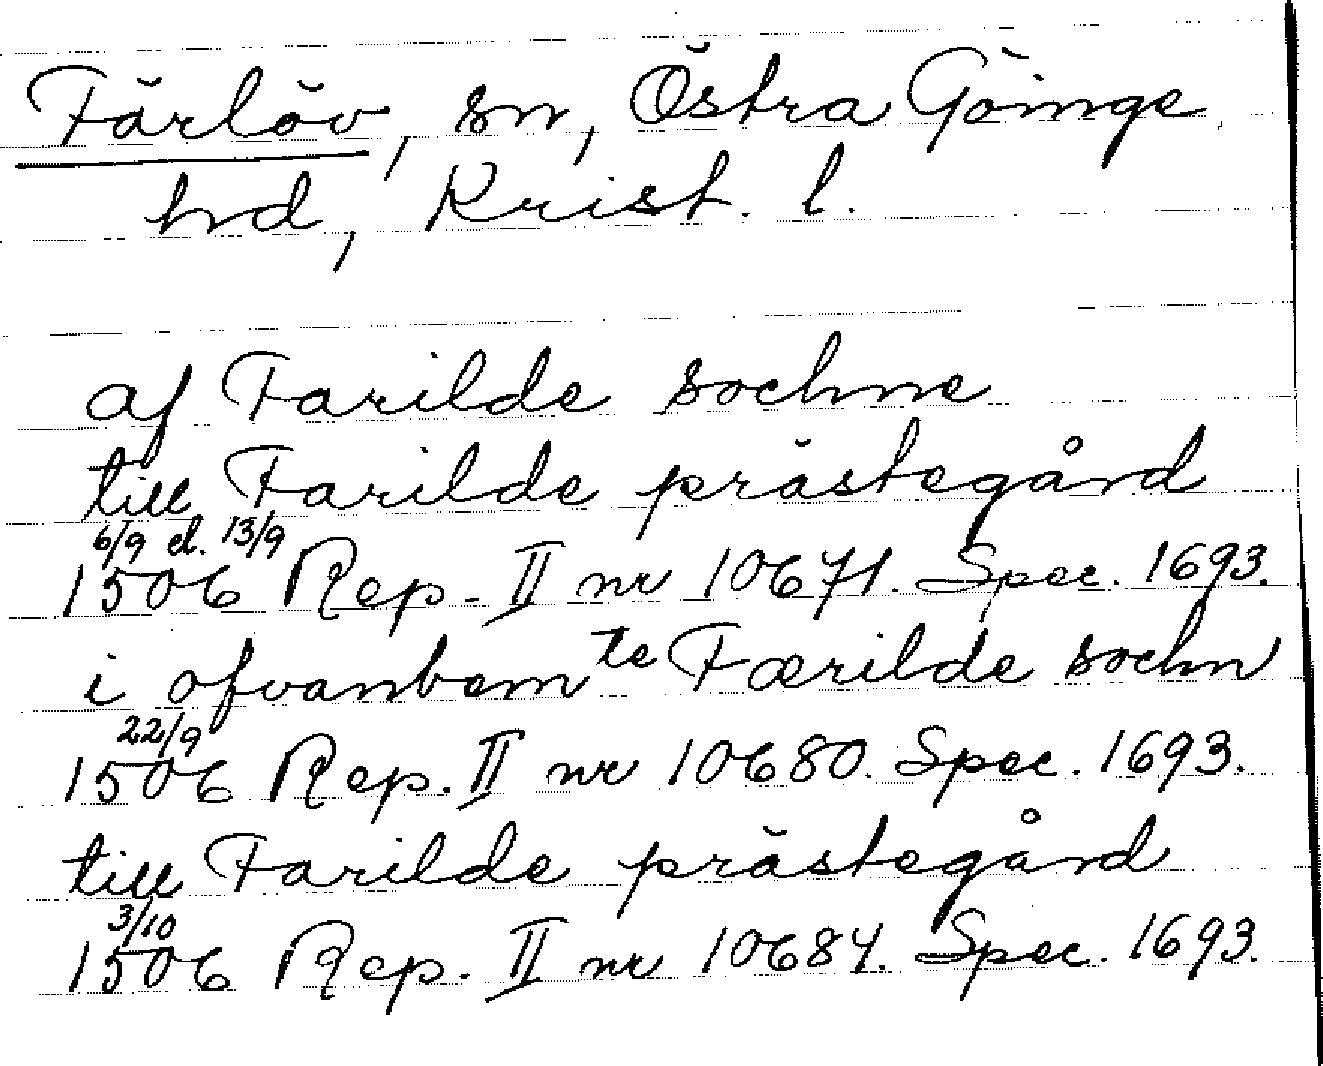 Färlöv, sn, Östra Göinge
hd, Krist. l.
af Farilde sochne
till Farilde prästegård
6/9 el. 13/9
1506 Rep. II nr 10671. Spec. 1693.
i ofvanbem te Færilde sochn
22/9
1506 Rep. II nr 10680. Spec. 1693.
till Farilde prästegård
3/10
1506 Rep. II nr 10684. Spec. 1693.